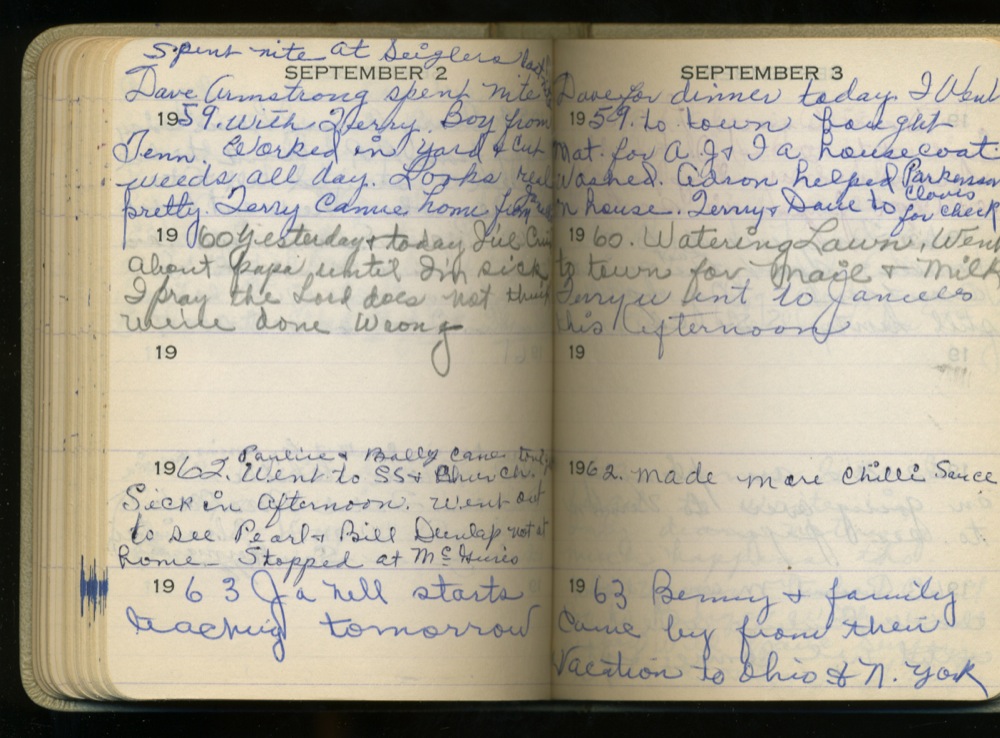 Spent nite at Seiglers last
SEPTEMBER 2
Dave Armstrong spent nite
1959. With Terry. Boy from
Tenn. Worked in yard & cut
weeds all day. Looks real
pretty. Terry came home from
1960 Yesterday & today I've
about papa until I'm sick
I pray the Lord does not think
we've done wrong
19
Pauline & Bally came
1962. Went to SS & Church.
Sick in afternoon. Went out
to see Pearl & Bill Dunlap not at
home - Stopped at
1963 Ja nell starts
teaching tomorrow
SEPTEMBER 3
Dave for dinner today. I Went
1959. to town bought
mat. for A. J & I a housecoat.
Washed. helped Parkerson
n house. Terry & Dave to Clovis
for check
1960. Watering Lawn, Went
to town for Mail & Milk
Terry went to Janices
this afternoon
19
1962. made more Chilli Sauce
1963 Benny & family
came by from their
Vacation to Ohio & N. York